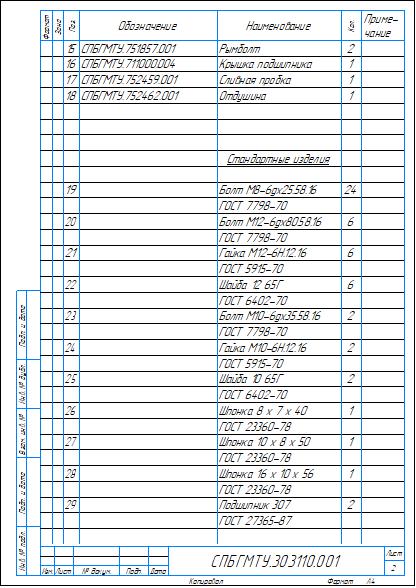 Формат Зона Поз. Обозначение Наименование Кол. Приме-
чание
15 СПБГМТУ.751857.001 Рымболт 2
16 СПБГМТУ.711000.004 Крышка подшипника 1
17 СПБГМТУ.752459.001 Сливная пробка 1
18 СПБГМТУ.752462.001 Отдушина 1
Стандартные изделия
19 Болт М8-6gx25.58.16 24
ГОСТ 7798-70
20 Болт М12-6gx80.58.16 6
ГОСТ 7798-70
21 Гайка М12-6Н.12.16 6
ГОСТ 5915-70
22 Шайба 12 65Г 6
ГОСТ 6402-70
23 Болт М10-6gx35.58.16 2
ГОСТ 7798-70
24 Гайка М10-6Н.12.16 2
ГОСТ 5915-70
25 Шайба 10 65Г 2
ГОСТ 6402-70
26 Шпонка 8 х 7 х 40 1
ГОСТ 23360-78
27 Шпонка 10 х 8 х 50 1
ГОСТ 23360-78
28 Шпонка 16 х 10 х 56 1
ГОСТ 23360-78
29 Подшипник 307 2
ГОСТ 27365-87
Подп. и дата
Инв. № дубл.
Взам. инв. №
Подп. и дата
Инв. № подл.
Изм. Лист № докум. Подп. Дата
СПБГМТУ.303110.001
Лист
2
Копировал Формат А4